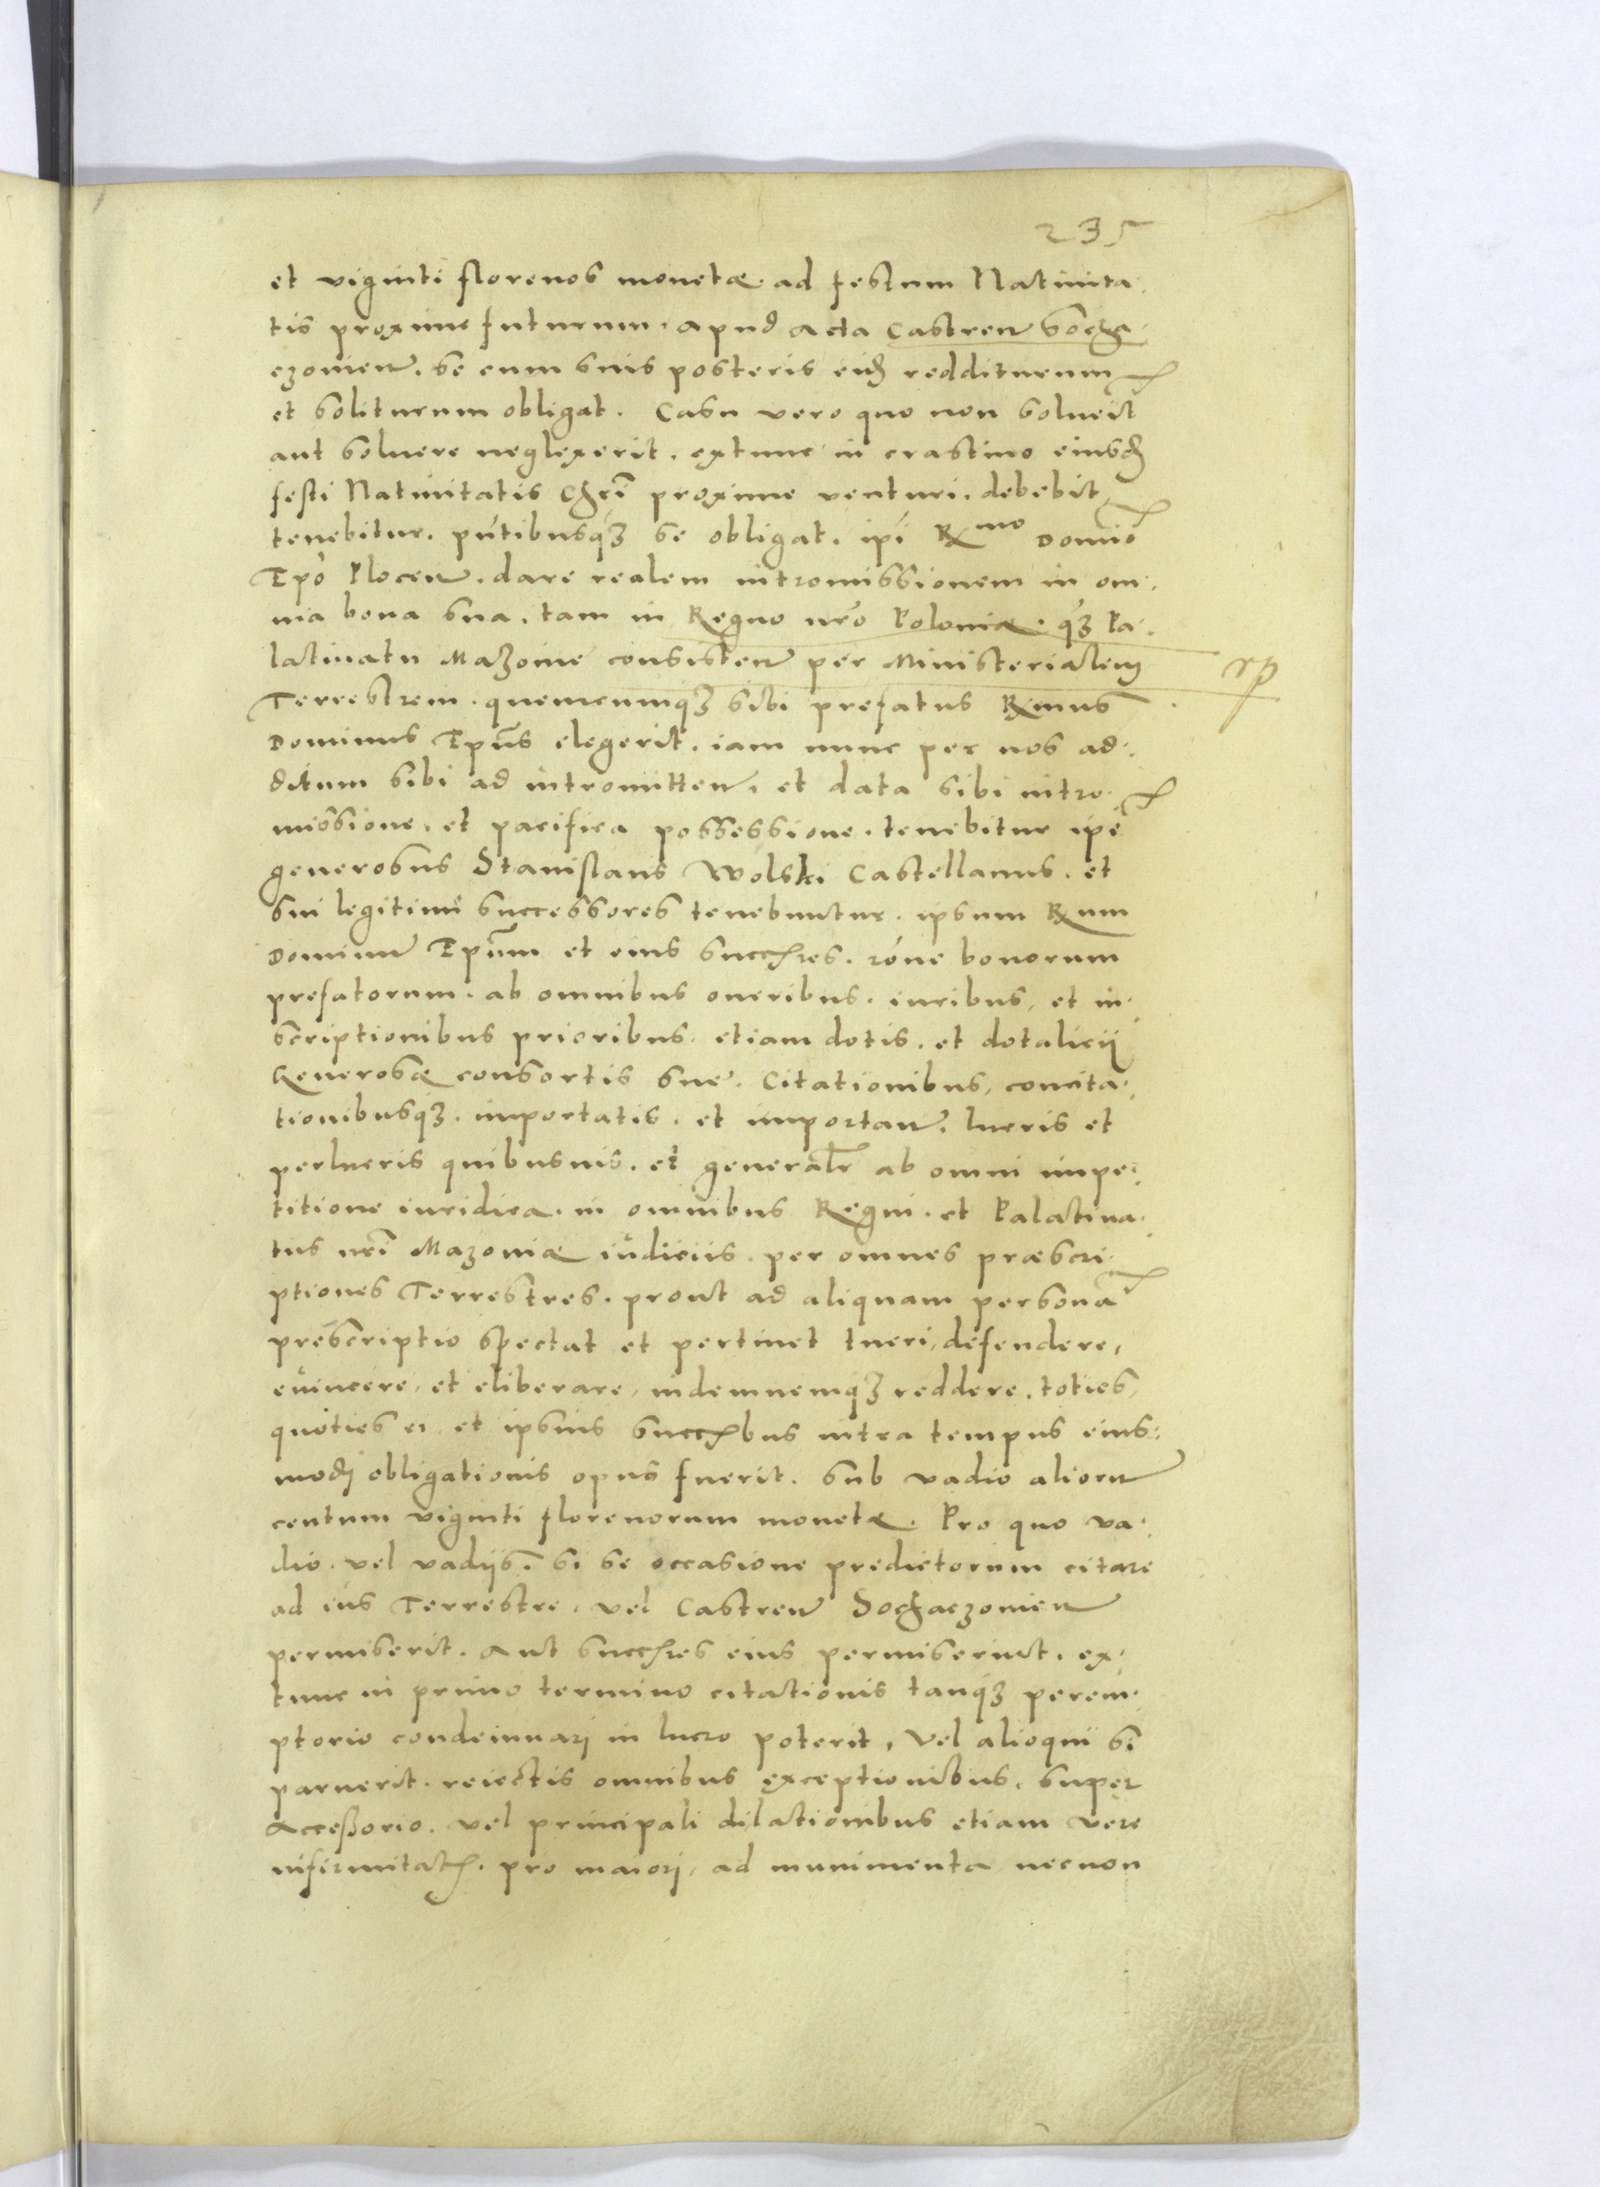 235
et viginti florenos monetæ. ad festum Natiuita.
tis proxime futurum. apud acta Castren Socha.
czouien. se cum suis posteris eid redditurum
et soliturum obligat. Casu vero quo non soluerit
aut soluere neglexerit. extunc in crastino eiusd
festi Natiuitatis Chri proxime venturi. debebit
tenebitur. pntibusq se obligat. ipi Rmo Domio
Epo Plocen. dare realem intromissionem in om.
nia bona sua. tam in Regno nro Poloniæ. q Pa.
latinatu Mazouie consisten per Ministerialem
rp
Terrestrem. quemcumq sibi prefatus Rmus
Dominus Epus elegerit. iam nunc per nos ad.
ditum sibi ad intromitten. et data sibi intro.
missione. et pacifica possessione. tenebitur ipe
generosus Stanislaus Wolski Castellanus. et
sui legitimi successores tenebuntur. ipsum Rum
Dominu Epum et eius succres. rone bonorum
prefatorum. ab omnibus oneribus. iuribus, et in.
scriptionibus prioribus. etiam dotis. et dotalicij
Generosæ consortis sue. Citationibus, concita.
tionibusq. importatis. et importan. lucris et
perlucris quibusuis. et generalr ab omni impe.
titione iuridica. in omnibus Regni. et Palatina.
tus nri Mazouiæ iudiciis. per omnes præscri.
ptiones Terrestres. prout ad aliquam persona
prescriptio spectat et pertinet tueri, defendere,
euincere, et eliberare, indemnemq reddere. toties,
quoties ei et ipsius succbus intra tempus eius.
modi obligationis opus fuerit. sub vadio alioru
centum viginti florenorum monetæ. Pro quo va.
dio. vel vadijs. si se occasione predictorum citare
ad ius Terrestre. vel Castren Sochaczouien
permiserit. aut succres eius permiserint. ex.
tunc in primo termino citationis tanq perem.
ptorio condemnari in lucro poterit, vel alioqui si
paruerit. reiectis omnibus exceptionibus. super
accessorio. vel principali dilationibus etiam vere
infirmitat. pro maiori, ad munimenta necnon